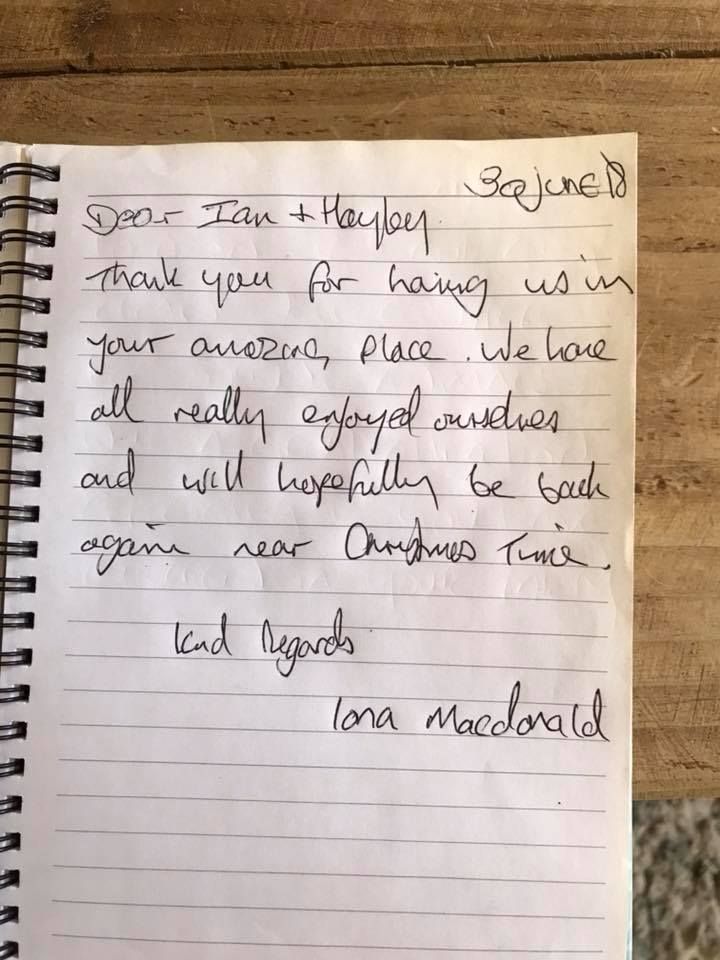 3rd June 18
Dear Ian + Hayley.
Thank you for having us in
your amazing place. We have
all really enjoyed ourselves
and will hopefully be back
again near Christmas Time.
Kind Regards
Iona Macdonald